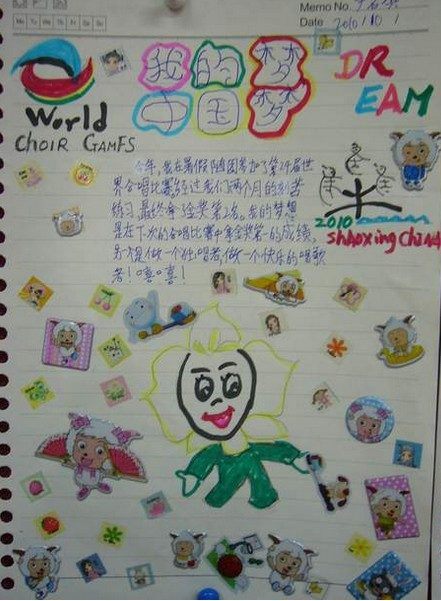 Memo No.
Mo Tu We Th Fr Sa Su
Date 2010/10/
我的梦
DR
中国梦
EAM
World
CHOIR GAMES
今年,我在暑假随团参加了第六届世
界合唱比赛,经过我们两个月的刻苦
练习最终拿了金奖第2名,我的梦想
是在下次的合唱比赛中拿金奖第一的成绩,
做一个独唱者,做一个快乐的唱歌
者!嘻嘻!
2010
shaoxing China